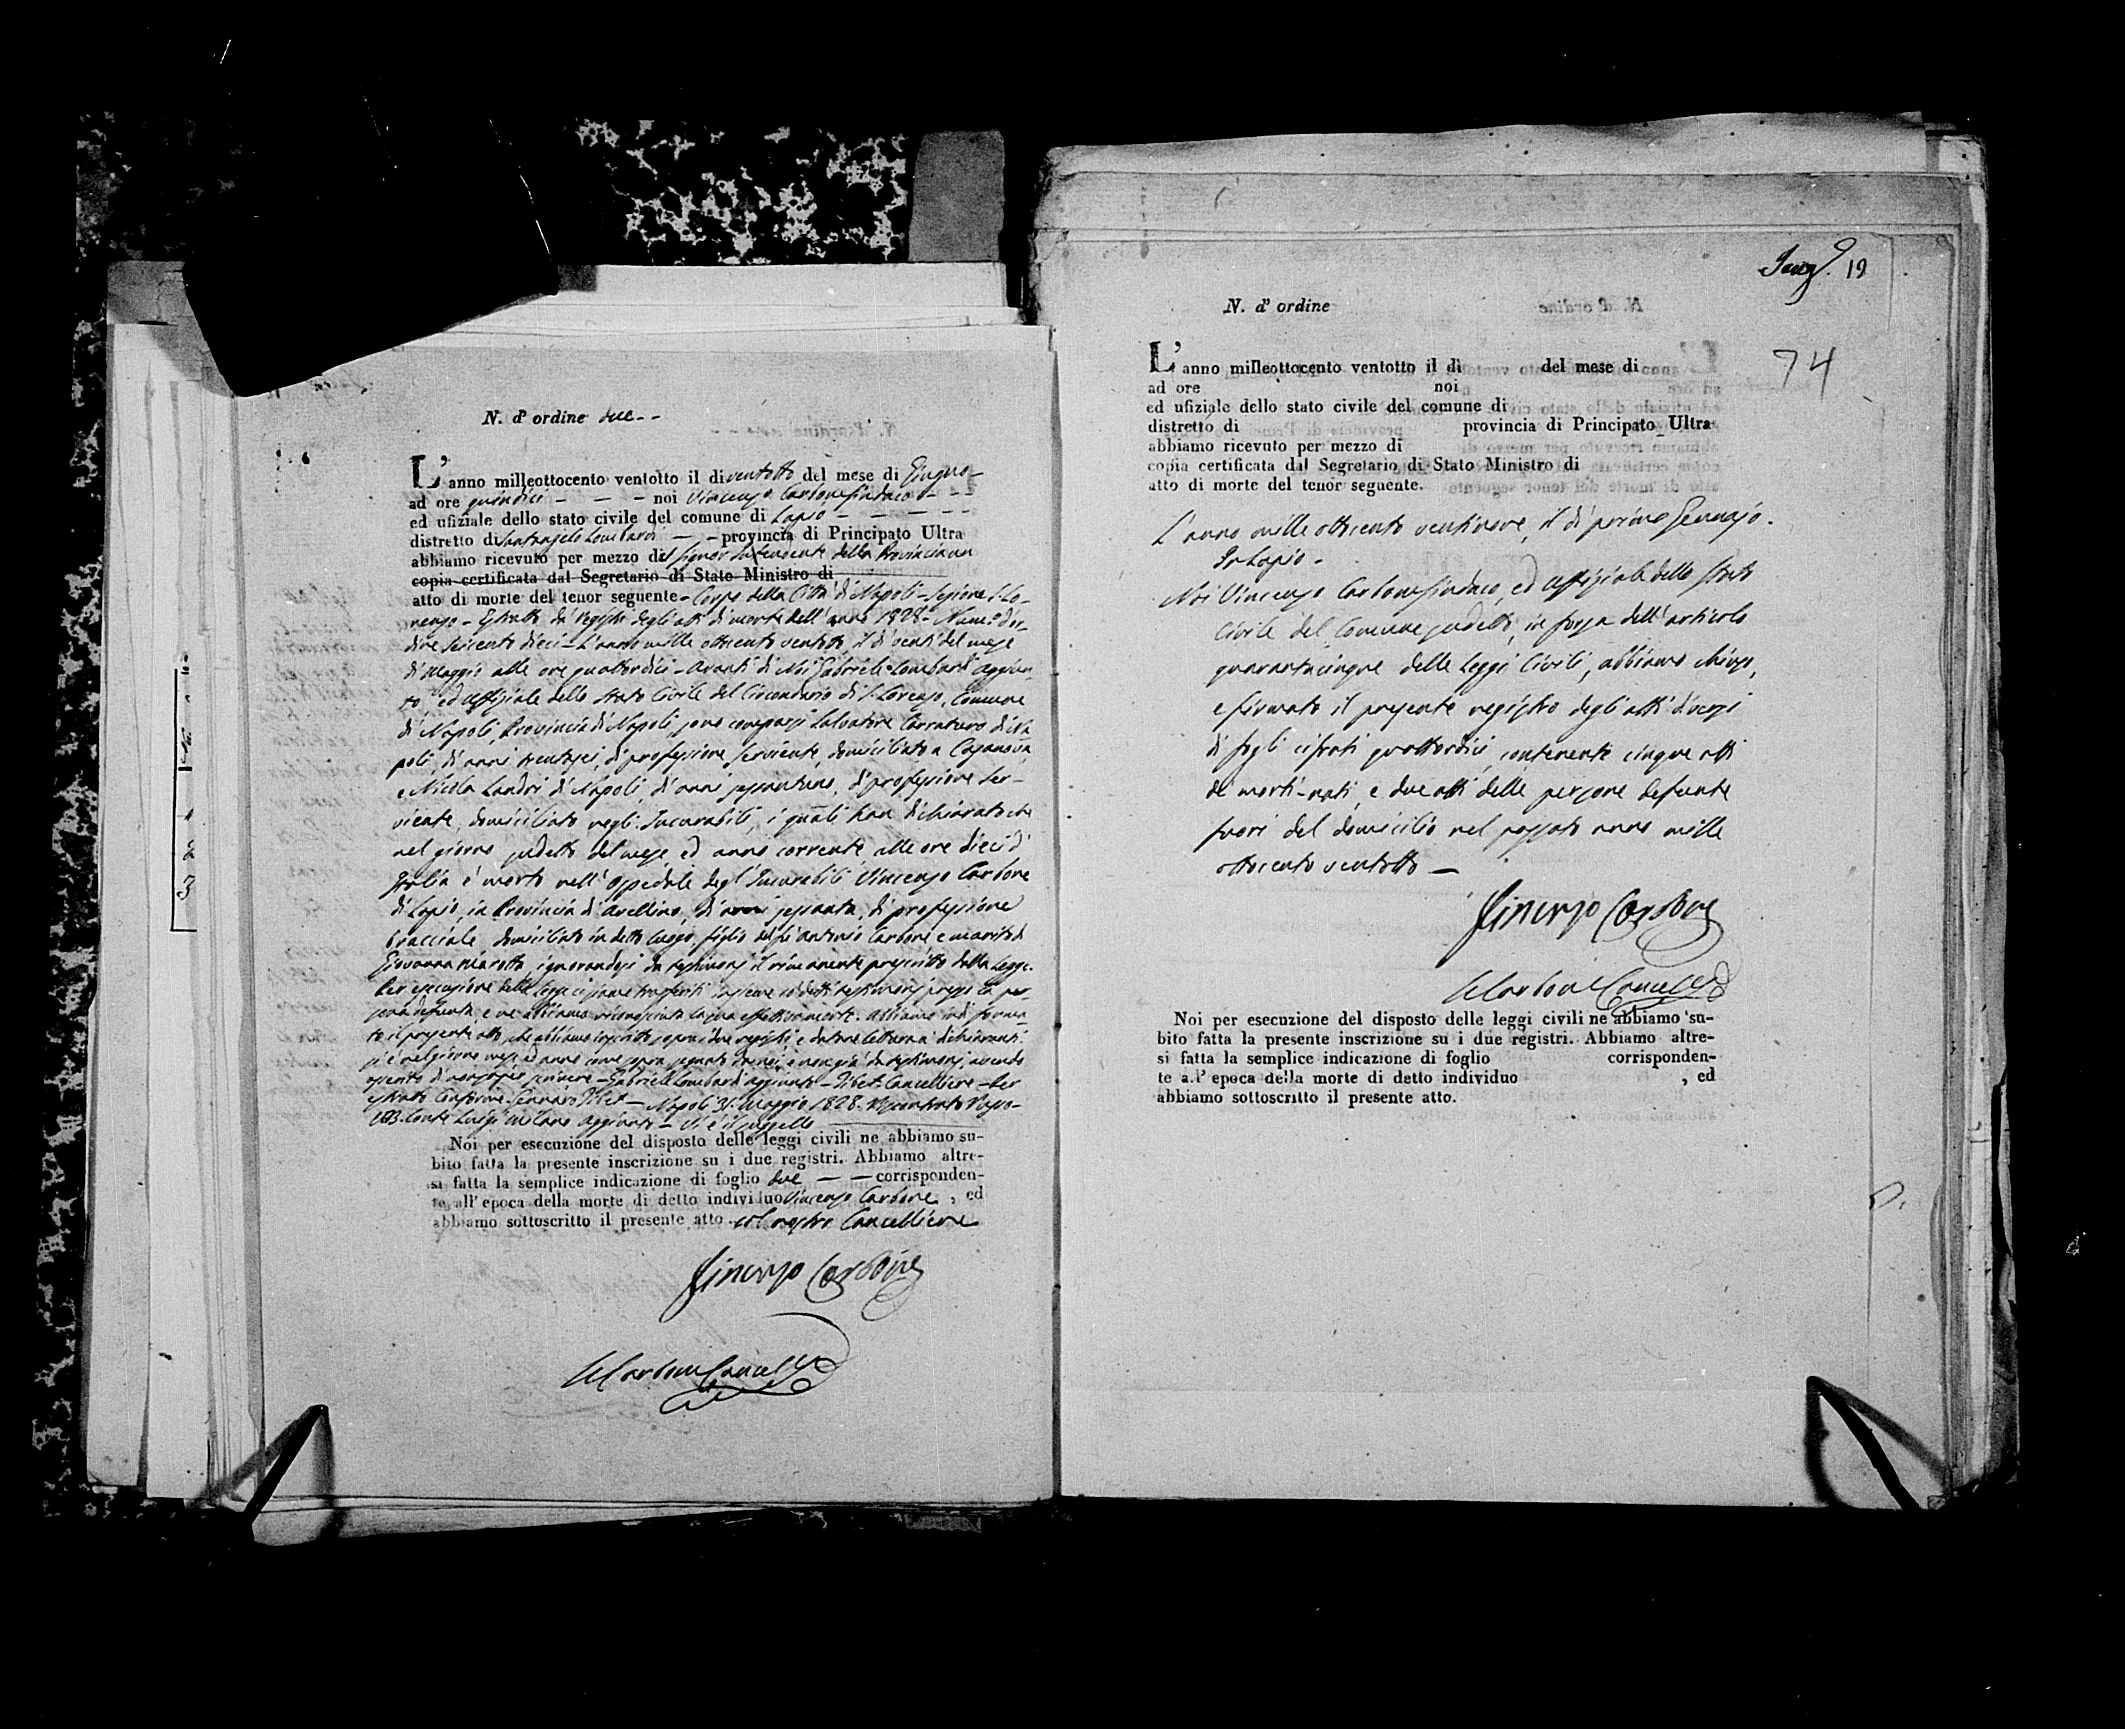 N. d' ordine due - -
L' anno milleottocento ventotto il di ventotto del mese di Giugno -
ad ore quindici - - - noi Vincenzo Carbone Sindaco - - -
ed ufiziale dello stato civile del comune di Lapio - - - - -
distretto di Santangelo Lombardi - - provincia di Principato Ultra
abbiamo ricevuto per mezzo del Signor Intendente della Provincia un
copia certificata dal Segretario di Stato Ministro di
atto di morte del tenor seguente - Corpo della Città di Napoli - Sezione S. Lo-
renzo - Estratto da' registri degli atti di morte dell' anno 1828 - Num.o d'or-
dine seicento dieci - L'anno mille ottocento ventotto, il dì venti del mese
di Maggio alle ore quattordici - Avanti di Noi Gabriele Lombardi Aggiun-
to, ed Uffiziale dello Stato Civile del Circondario di S. Lorenzo, Comune
di Napoli, Provincia di Napoli, sono comparsi Salvatore Carraturo di Na
poli, di anni trentasei, di professione Serviente, domiciliato a Casanova,
e Nicola Landri di Napoli, di anni sessantuno, di professione Ser-
viente, domiciliato negl' Incurabili, i quali han dichiarato che
nel giorno sudetto del mese ed anno corrente alle ore dieci d'
Italia è morto nell' Ospedale degl' Incurabili Vincenzo Carbone
di Lapio, in Provincia di Avellino, di anni sessanta, di professione
bracciale, domiciliato in detto luogo, figlio del fu Antonio Carbone e marito di
Giovanna Marotta, ignorandosi da testimonj il rimanente prescritto dalla Legge.
Per esecuzione della Legge ci siamo trasferiti insieme co' detti testimonj presso la per-
sona defunta, e ne abbiamo riconosciuta la sua effettiva morte. Abbiamo indi forma-
to il presente atto, che abbiamo inscritto sopra i due registri, e datane lettura a' dichiaranti
si è nel giorno mese ed anno come sopra segnato da noi, e non già da testimonj, avendo
asserito di non saper scrivere - Gabriele Lombardi aggiunto - Tibet Cancelliere - Per
estratto Conforme Gennaro Tibet - Napoli 31. Maggio 1828.
Conte Luigi Milano Aggiunto - Vi è il suggello
Noi per esecuzione del disposto delle leggi civili ne abbiamo su-
bito fatta la presente inscrizione su i due registri. Abbiamo altre-
si fatta la semplice indicazione di foglio due - - corrisponden-
te all' epoca della morte di detto individuo Vincenzo Carbone , ed
abbiamo sottoscritto il presente atto col nostro Cancelliere
Vincenzo Carbone
Carbone Canc.
19
74
N. d' ordine
L' anno milleottocento ventotto il di del mese di
ad ore noi
ed ufiziale dello stato civile del comune di
distretto di provincia di Principato Ultra
abbiamo ricevuto per mezzo di
copia certificata dal Segretario di Stato Ministro di
atto di morte del tenor seguente.
L'anno mille ottocento ventinove, il dì primo Gennajo.
In Lapio -
Noi Vincenzo Carbone Sindaco, ed Uffiziale dello Stato
Civile del Comune sudetto, in forza dell' articolo
quarantacinque delle Leggi Civili, abbiamo chiuso,
e firmato il presente registro degli atti diversi
di fogli cifrati quattordici, contenente cinque atti
di morti-nati, e due atti delle persone defunte
fuori del domicilio nel passato anno mille
ottocento ventotto -
Vincenzo Carbone
Carbone Canc.
Noi per esecuzione del disposto delle leggi civili ne abbiamo su-
bito fatta la presente inscrizione su i due registri. Abbiamo altre-
si fatta la semplice indicazione di foglio corrisponden-
te all' epoca della morte di detto individuo , ed
abbiamo sottoscritto il presente atto.